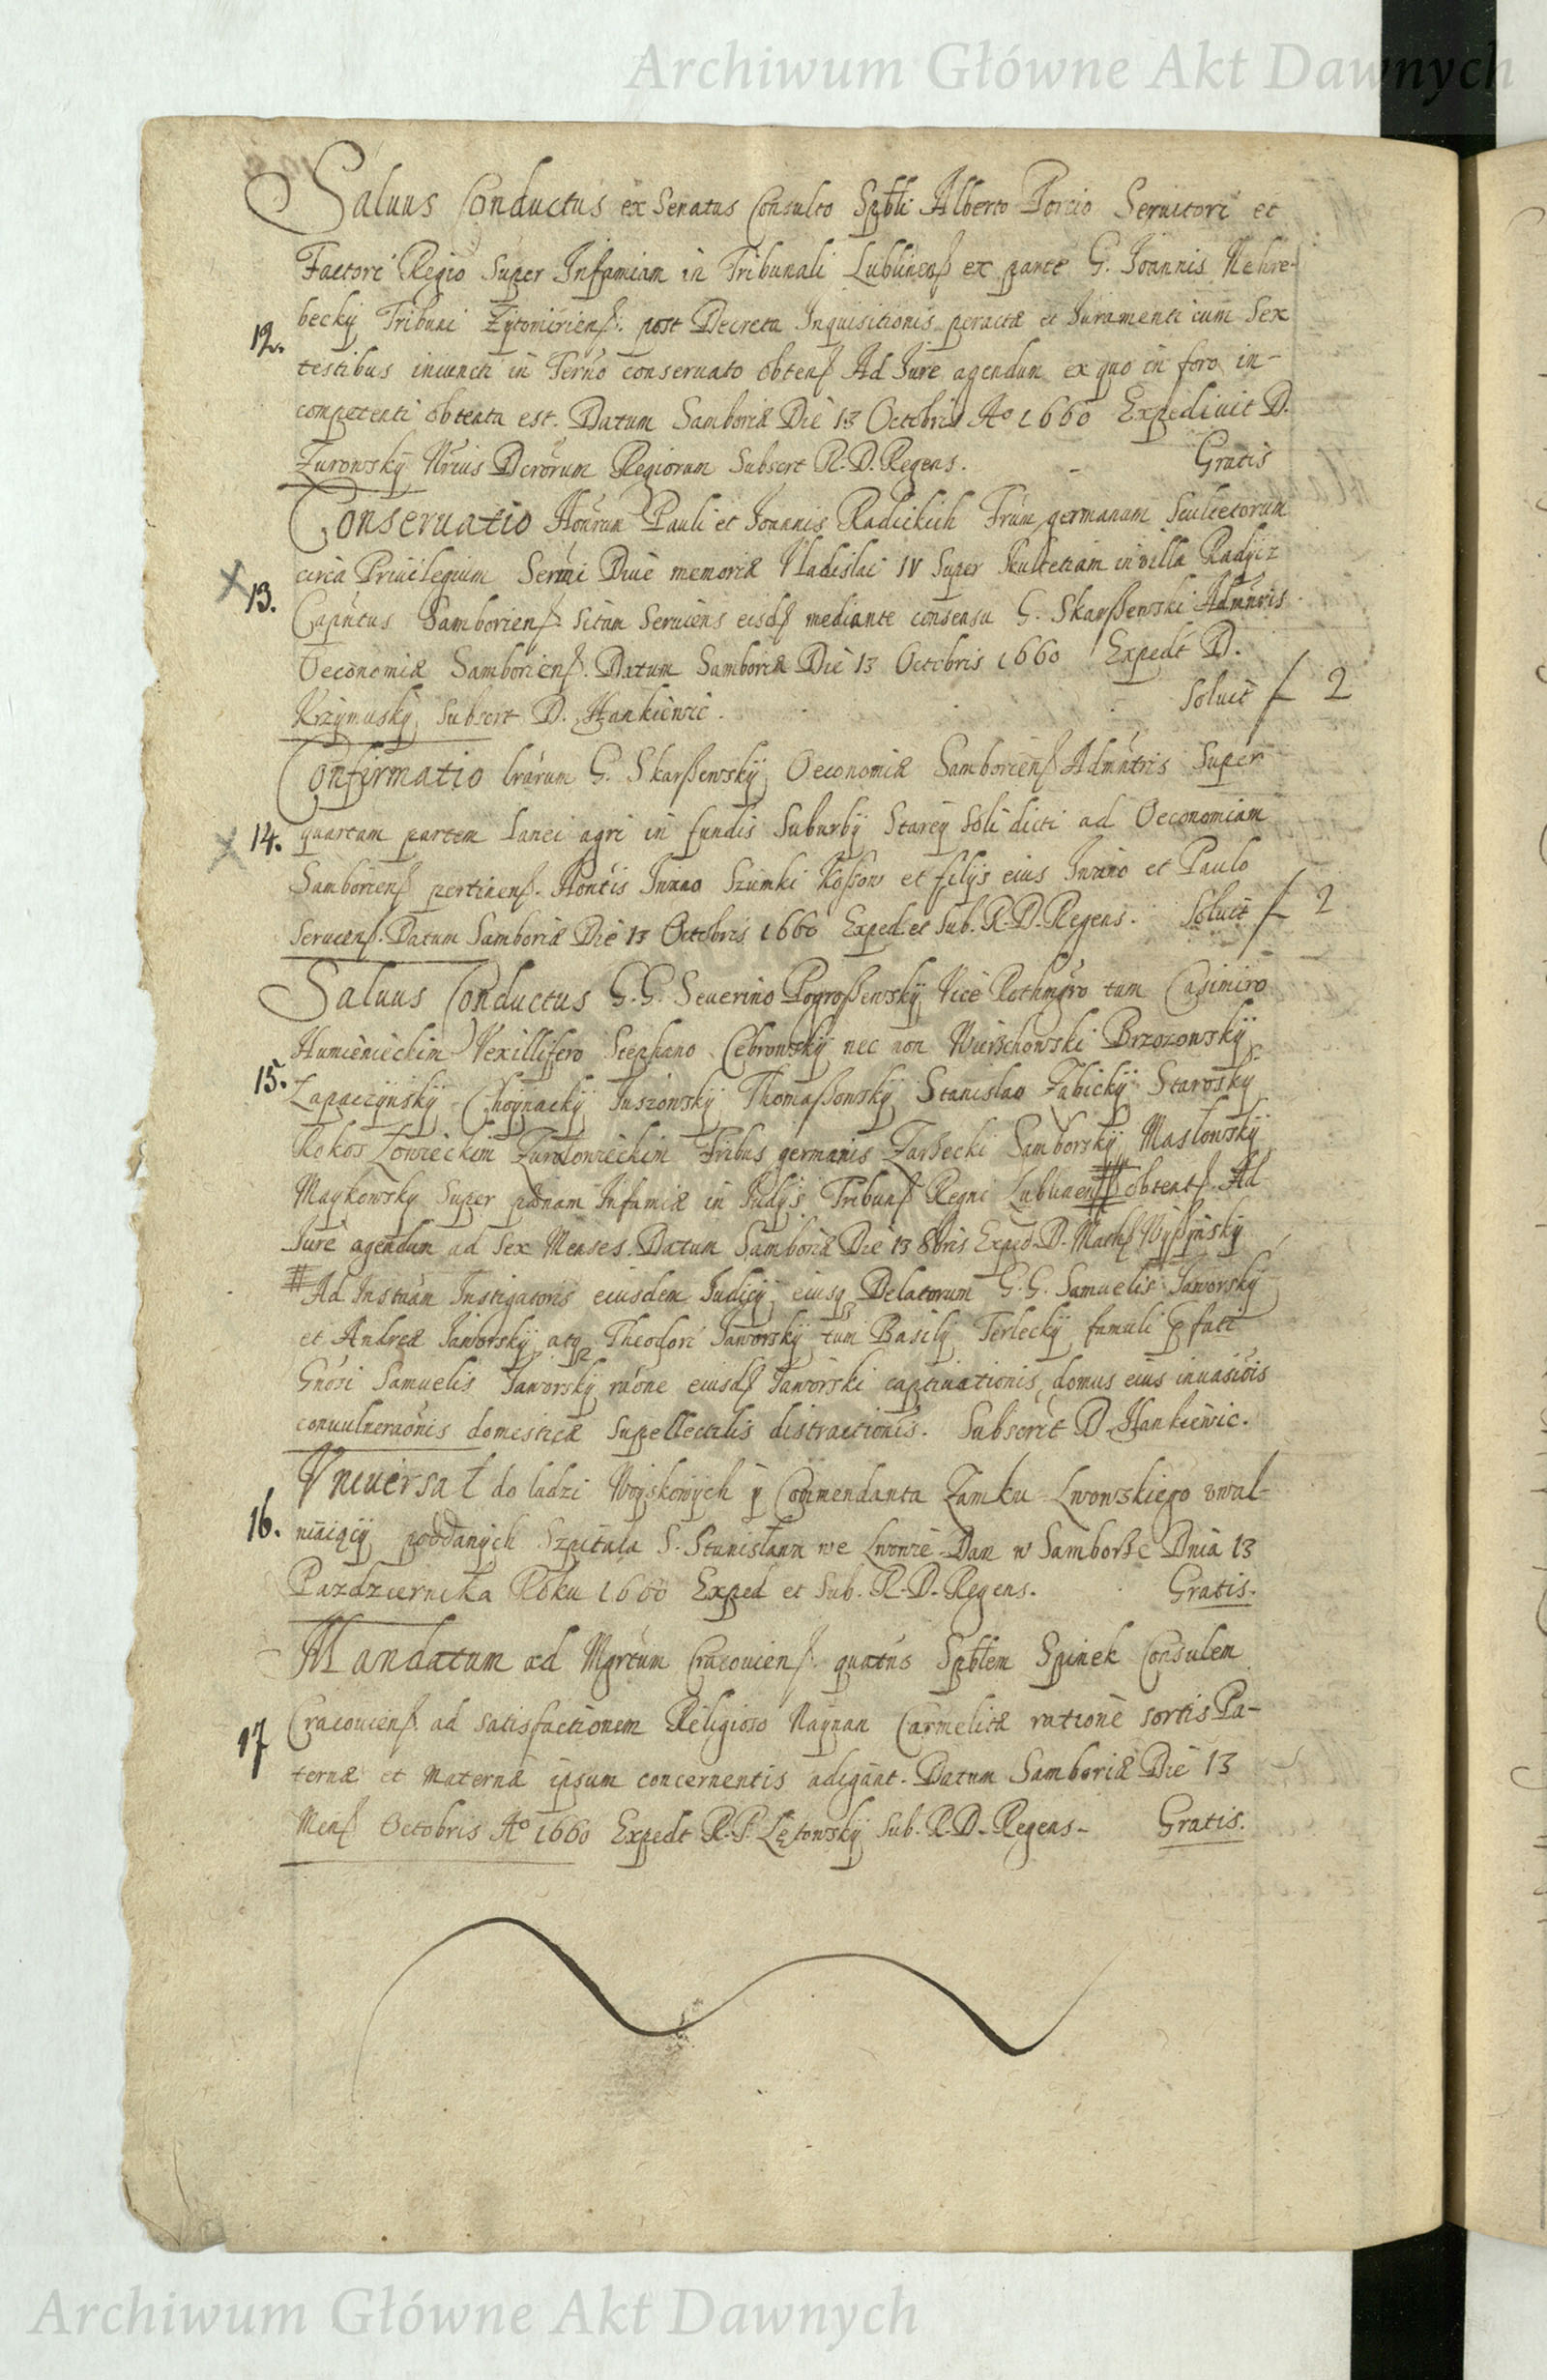 Archiwum Główne Akt Dawnych
Saluus Conductus ex Senatus Consulto Spbli Alberto Porcio Seruitori et
Factori Regio Super Infamiam in Tribunali Lublinenß ex parte G. Joannis Nehre-
beckÿ Tribuni Zÿtomirienß: post Decreta Inquisitionis peractæ et Juramenti cum Sex
12.
testibus iniuncti in Termo conseruato obtenß Ad Jure agendum ex quo in foro in-
competenti obtenta est. Datum Samboriæ Die 13 Octobris Ao 1660 Expediuit D.
Zurowskÿ Nrius Dcrorum Regiorum Subscrt R. D. Regens. - Gratis
Conseruatio Honrum Pauli et Joannis Radickich Frum germanum Scultetorum
circa Priuilegium Sermi Diuæ memoriæ Vladislai IV Super Scultetiam in villa Radÿcz
13.
Capntus Samborienß Sitam Seruiens eisdß mediante consensu G. Skarßewski Admnris
Oeconomiæ Samborienß. Datum Samboriæ Die 13 Octobris 1660 Expedt D.
Krzÿmuskÿ Subscrt D. Hankiewic. Soluit f 2
Confirmatio lrarum G. Skarßewskÿ Oeconomiæ Samborienß Admntris Super
14. quartam partem Lanei agri in fundis Suburbÿ Stareÿ Soli dicti ad Oeconomiam
Samborienß pertinenß. Hontis Iwano Szumki Koßow et filÿs eius Iwano et Paulo
Seruienß. Datum Samboriæ Die 13 Octobris 1660 Exped. et Sub. R. D. Regens. Soluit f 2
Saluus Conductus G. G. Seuerino Pogroßewskÿ Vice Rothmgro tum Casimiro
Humienieckim Vexillifero Stephano Cebrowskÿ nec non Wierzchowski Brzozowskÿ
15. Lapaczÿnskÿ Choÿnackÿ Juszowskÿ Thomaßowskÿ Stanislao Zabickÿ Staroskÿ
Kokos Łowieckim Zurałowieckim Fribus germanis Zarßecki Samborskÿ Masłowskÿ
Maÿkowskÿ Super pænam Infamiæ in Iudÿs Tribunß Regni Lublinenß # obtentß. Ad
Jure agendum ad Sex Menses. Datum Samboriæ Die 13 8bris Exped. D. Mathß Wÿßÿnskÿ
# Ad Instnam Instigatoris eiusdem Iudicÿ eiusq Delatorum G. G. Samuelis Jaworskÿ
et Andreæ Jaworskÿ atq Theodori Jaworskÿ tum Basilÿ Terleckÿ famuli pfati
Gnosi Samuelis Jaworskÿ raone eiusdß Jaworski captiuationis, domus eius inuasiois
conuulneraonis domesticæ Supellectilis distractionis. Subscrit D. Hankiewic.
Vniuersał do ludzi Woÿskowÿch ÿ Commendanta Zamku Lwowskiego vwal-
16. niaiącÿ poddanÿch Szpitala S. Stanisława we Lwowie. Dan w Samborße Dnia 13
Pazdziernika Roku 1660 Exped et Sub. R. D. Regens. Gratis.
Mandatum ad Mgrtum Cracouienß. quatns Spblem Spinek Consulem
Cracouienß. ad satisfactionem Religioso Naÿnan Carmelitæ ratione sortis Pa-
17
ternæ et Maternæ ipsum concernentis adigant. Datum Samboriæ Die 13
Menß Octobris Ao 1660 Expedt R. P. Lętowskÿ Sub. R. D. Regens- Gratis.
Archiwum Główne Akt Dawnych